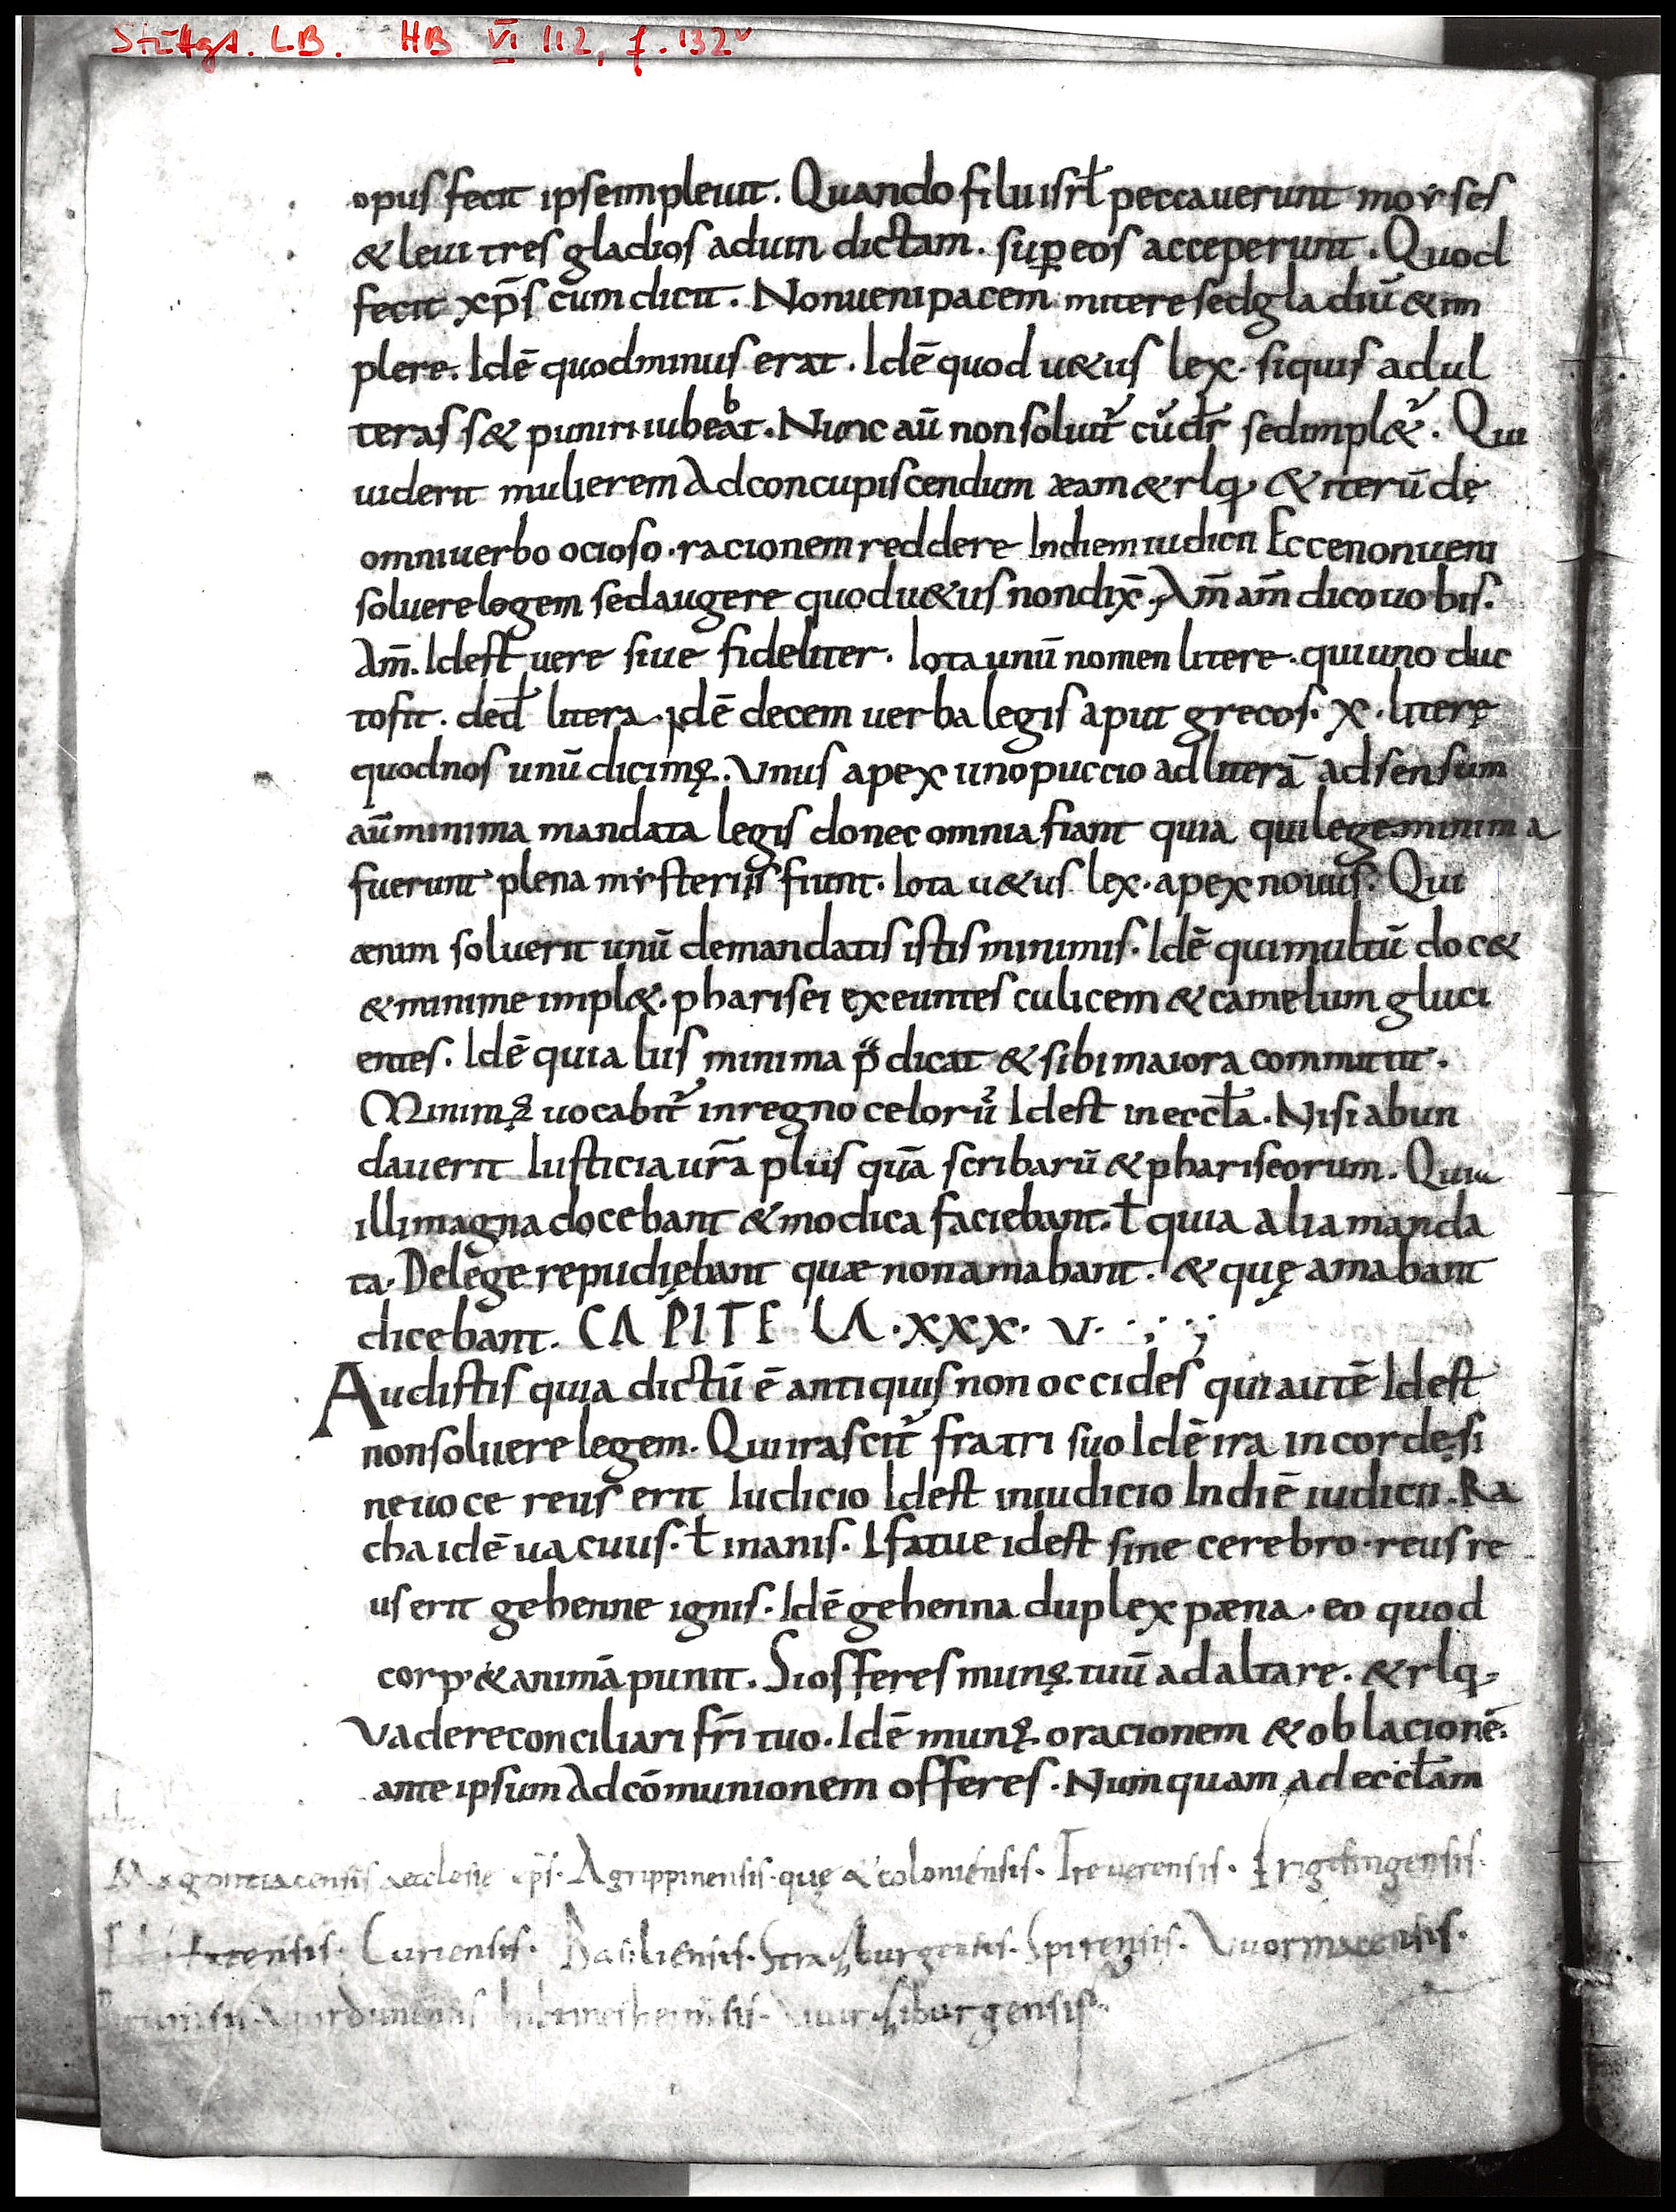 Stuttgt. LB. HB VI 112, f. 132v
opus fecit ipse impleuit. Quando filii isrl̄ peccauerunt moẏses
& leui tres gladios ad uin dictam. sup̱ eos acceperunt. Quod
fecit xp̄s cum dicit. Non ueni pacem mitere sed gladiū & im
plere. Idē quod minus erat. Idē quod u&us lex. si quis adul
teras s& puniri iubeb̉at. Nunc aū non soluit᷑ cū dr̄ sed impl&᷑. Qui
uiderit mulierem Ad concupiscendum æam & rlq & iterū dę
omni uerbo ocioso. racionem reddere In diem iudicii Ecce non ueni
soluere legem sed augere quod u&us non dix̄. Am̄ am̄ dico uobis.
Am̄. Id est uere siue fideliter. Iota unū nomen litere. qui uno duc
to fit. ded̄ litera. idē decem uerba legis aput grecos. X. literę
quod nos unū dicimꝰ. Vnus apex uno puccio ad literā ad sensum
aū minima mandata legis donec omnia fiant quia qui lege minima
fuerunt plena mẏsteriis fiunt. Iota u&us lex. apex nouus. Qui
ænim soluerit unū de mandatis istis minimis. Idē qui multū doc&
& minime impl&. pharisei exeuntes culicem & camelum gluci
entes. Idē quia lius minima p̄dicat & sibi maiora committit.
Minimꝰ uocabit᷑ in regno celorū Id est in eccl̄a. Nisi abun
dauerit Iusticia ur̄a plus quā scribarū & phariseorum. Quia
illi magna docebant & modica faciebant. ł quia alia manda
ta. De lege repudiębant quæ non amabant. & quę amabant
dicebant. CAPITELA . XXX. V.
Audistis quia dictū ē antiquis non occides qui autē Id est
non soluere legem. Qui irascit᷑ fratri suo Idē ira in cordę si
ne uoce reus erit Iudicio Id est in iudicio In diē iudicii. Ra
cha idē uacuus. ł inanis. I fatue id est sine cerebro. reus re
us erit gehenne ignis. Idē gehenna duplex pæna. eo quod
corpꝰ & animā punit. Si offeres munꝰ tuū ad altare. & rlq
Vade reconciliari fr̄i tuo. Idē munꝰ. oracionem & oblacionē.
ante ipsum Ad cōmunionem offeres. Numquam ad eccl̄am
Magontiacensis aecclesie ep̄s. Agrippinensis. quę & coloniensis. Treuerensis. Frigisingensis.
Curiensis. Basiliensis. Strazburgensis. Spirensis. Vuormacensis.
Vuirziburgensis.